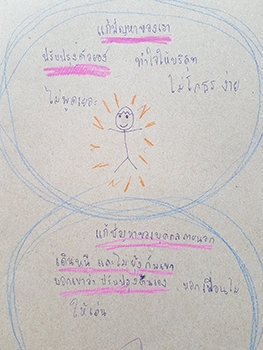 แก้ปัญหาของเรา
ปรับปรุงตัวเอง ทำใจให้บริสุท
ไม่โกธร ง่าย
ไม่พูดเยอะ
แก้ปัญหาของบุคคลภายนอก
เดินหนี และไม่ยุ่งกับเขา
บอกเขาว่า ปรับปรุงตนเอง บอกเพื่อนไม่
ให้เล่น